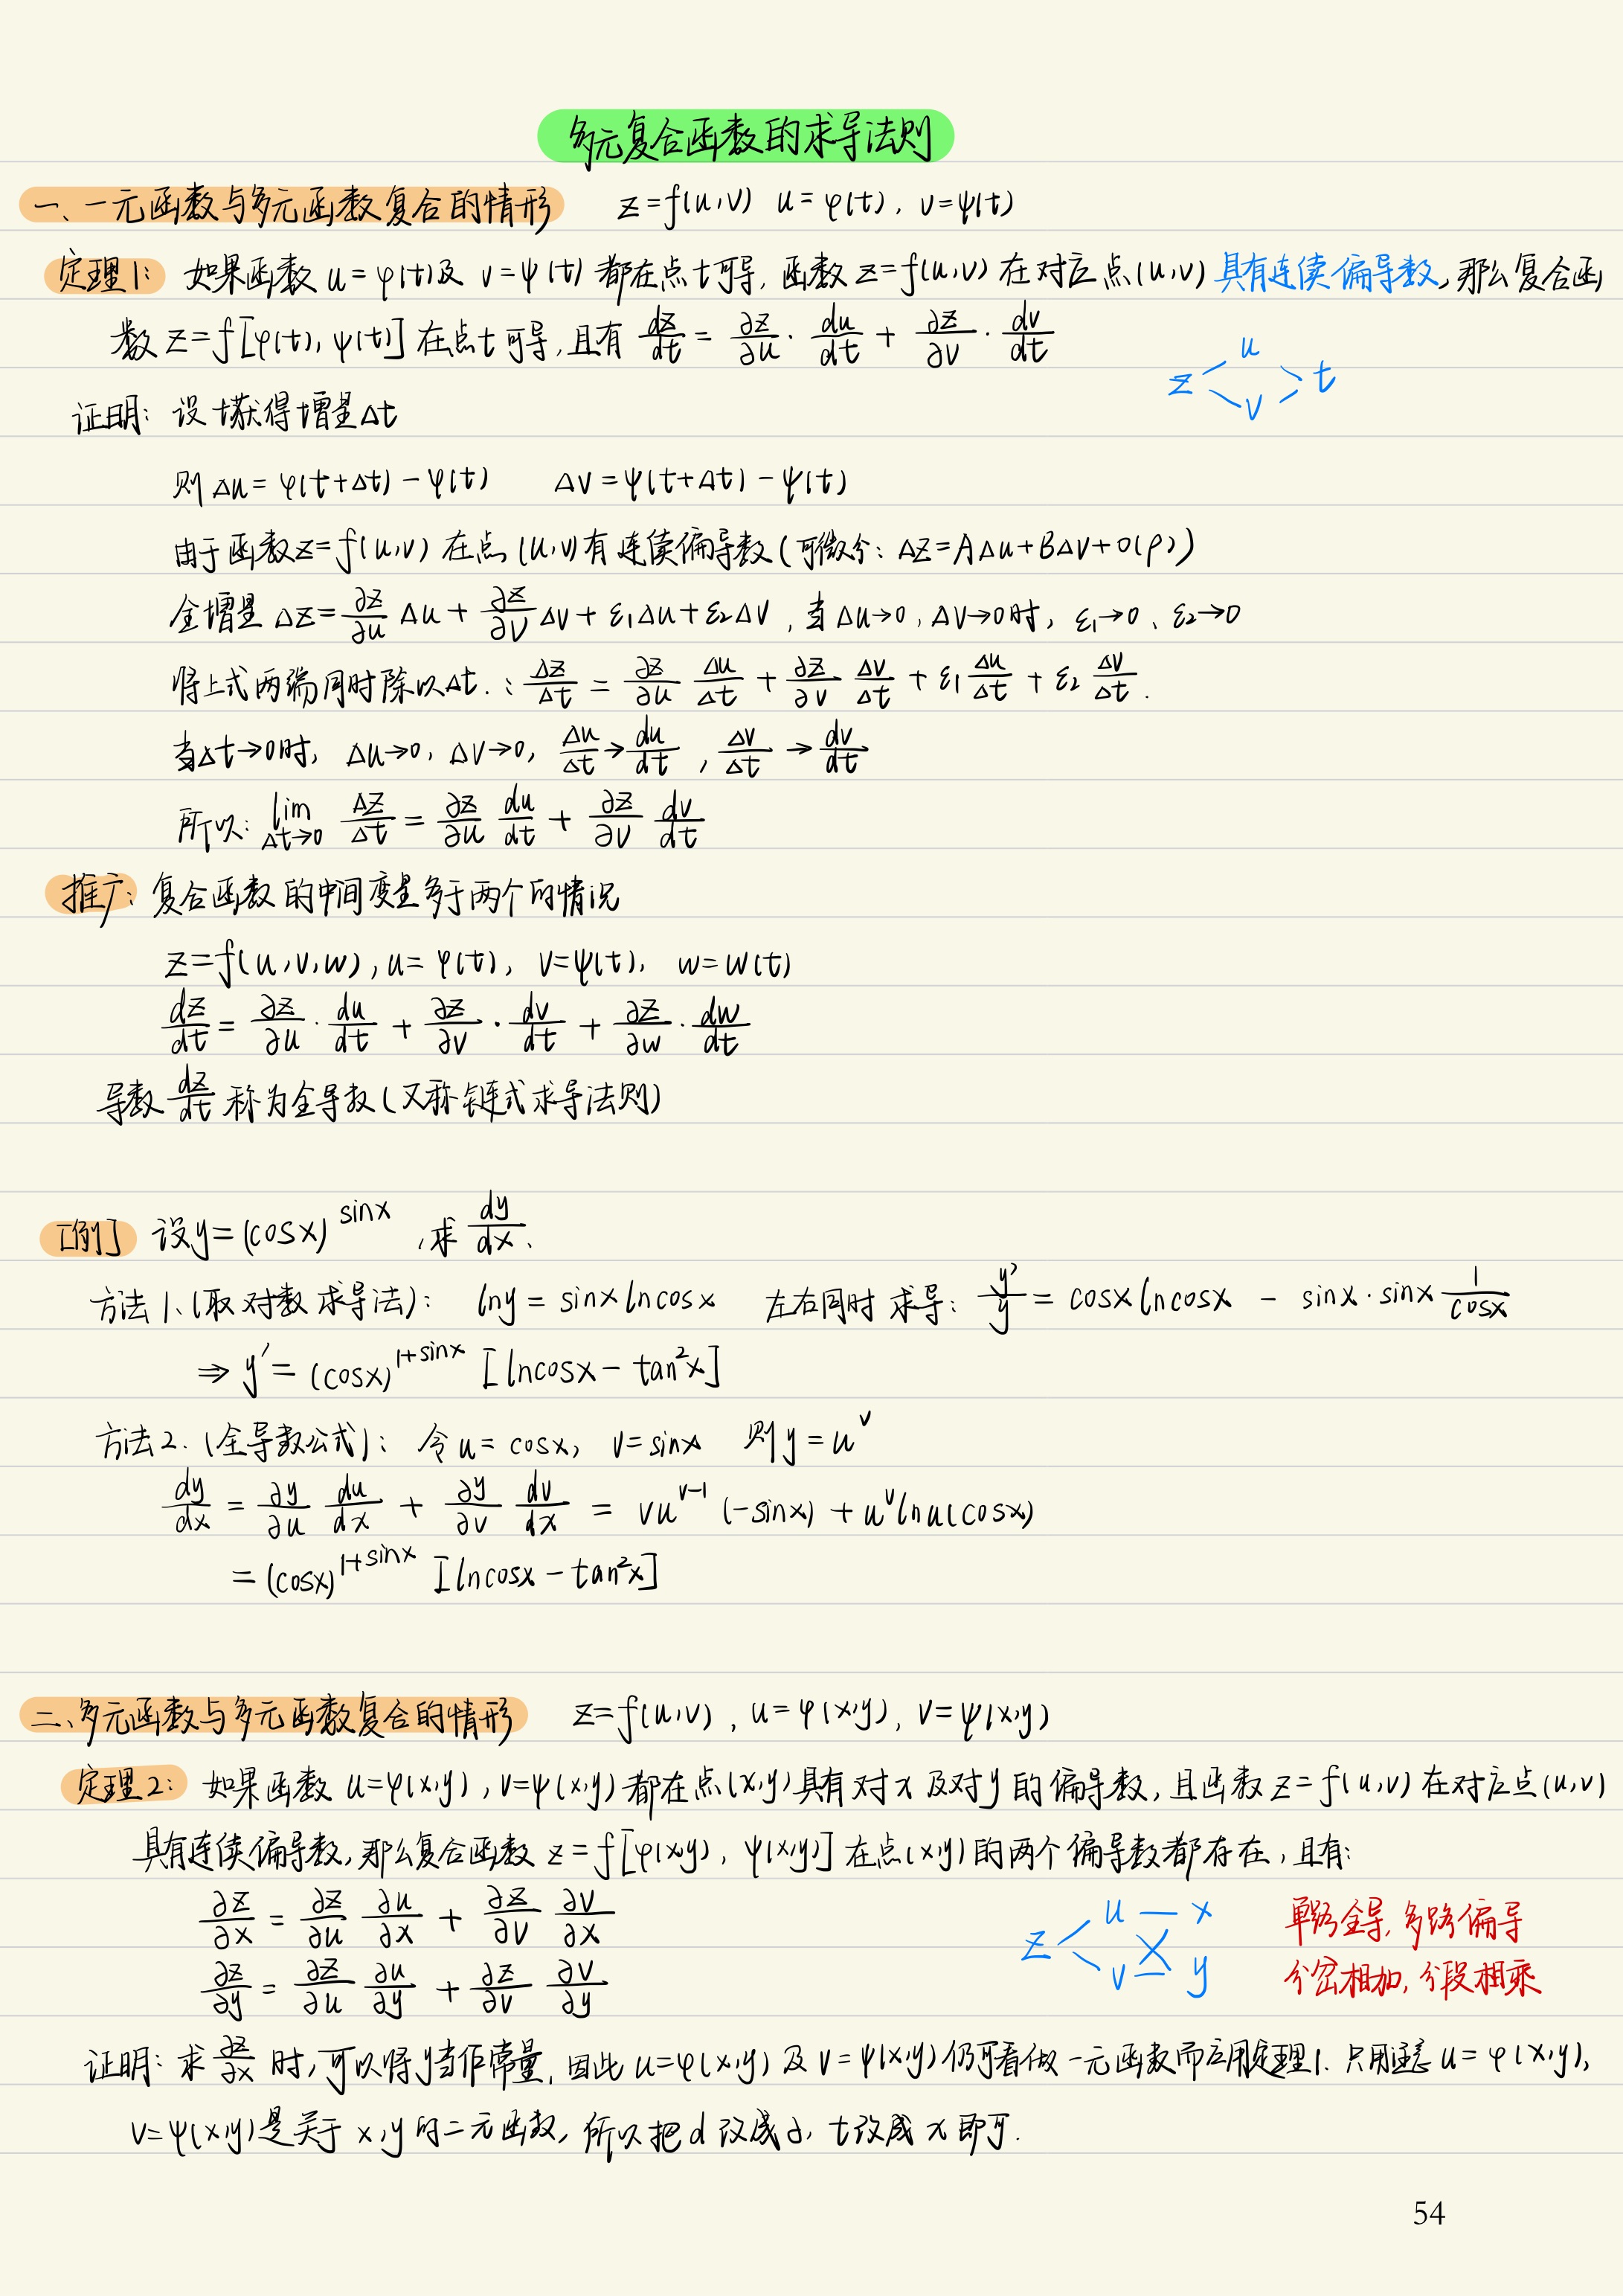 多元复合函数的求导法则
一、一元函数与多元函数复合的情形 z=f(u,v) u=φ(t), v=ψ(t)
定理1: 如果函数 u=φ(t)及 v=ψ(t) 都在点t可导, 函数 z=f(u,v) 在对应点(u,v) 具有连续偏导数,那么复合函
数 z=f[φ(t), ψ(t)] 在点t可导,且有 dz/dt = ∂z/∂u · du/dt + ∂z/∂v · dv/dt
z u v t
证明: 设t获得增量Δt
则 Δu=φ(t+Δt)-φ(t) Δv=ψ(t+Δt)-ψ(t)
由于函数z=f(u,v) 在点(u,v)有连续偏导数(可微分: Δz=AΔu+BΔv+o(ρ))
全增量 Δz=∂z/∂u Δu + ∂z/∂v Δv + ε₁Δu+ε₂Δv, 当Δu→0, Δv→0时, ε₁→0、ε₂→0
将上式两端同时除以Δt.: Δz/Δt = ∂z/∂u Δu/Δt + ∂z/∂v Δv/Δt + ε₁ Δu/Δt + ε₂ Δv/Δt.
当Δt→0时, Δu→0, Δv→0, Δu/Δt→du/dt, Δv/Δt→dv/dt
所以: lim Δt→0 Δz/Δt = ∂z/∂u du/dt + ∂z/∂v dv/dt
推广: 复合函数的中间变量多于两个的情况
z=f(u,v,w), u=φ(t), v=ψ(t), w=w(t)
dz/dt = ∂z/∂u · du/dt + ∂z/∂v · dv/dt + ∂z/∂w · dw/dt
导数 dz/dt 称为全导数(又称链式求导法则)
[例] 设y=(cosx)^sinx, 求 dy/dx.
方法1.(取对数求导法): lny=sinxlncosx 左右同时求导: y'/y = cosxlncosx - sinx·sinx 1/cosx
⇒ y'=(cosx)^(1+sinx) [lncosx-tan²x]
方法2.(全导数公式): 令u=cosx, v=sinx 则y=u^v
dy/dx = ∂y/∂u du/dx + ∂y/∂v dv/dx = vu^(v-1) (-sinx) + u^v lnu(cosx)
=(cosx)^(1+sinx) [lncosx-tan²x]
二、多元函数与多元函数复合的情形 z=f(u,v), u=φ(x,y), v=ψ(x,y)
定理2: 如果函数 u=φ(x,y), v=ψ(x,y)都在点(x,y)具有对x及对y的偏导数, 且函数 z=f(u,v) 在对应点(u,v)
具有连续偏导数,那么复合函数 z=f[φ(x,y), ψ(x,y)] 在点(x,y)的两个偏导数都存在,且有:
∂z/∂x = ∂z/∂u ∂u/∂x + ∂z/∂v ∂v/∂x
∂z/∂y = ∂z/∂u ∂u/∂y + ∂z/∂v ∂v/∂y
z u x v y
单路全导, 多路偏导
分岔相加, 分段相乘
证明: 求 ∂z/∂x 时,可以将y当作常量, 因此 u=φ(x,y) 及 v=ψ(x,y) 仍可看做一元函数而应用定理1. 只用注意 u=φ(x,y),
v=ψ(x,y)是关于x,y的二元函数, 所以把d改成∂, t改成x即可.
54